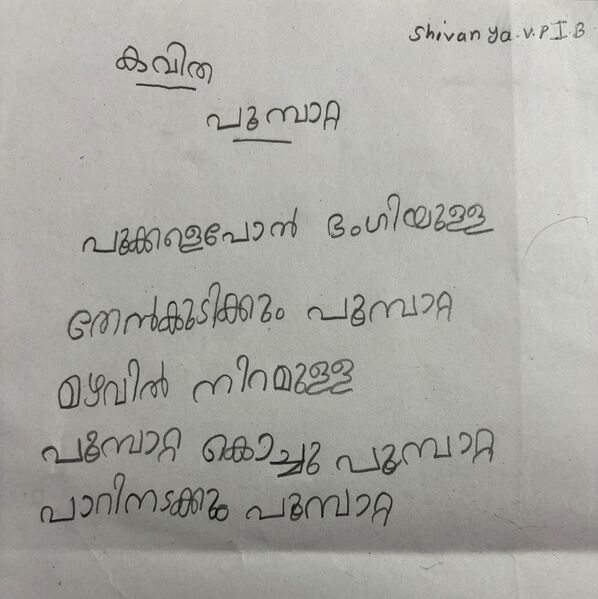 Shivanya.V.P I.B
കവിത
പൂമ്പാറ്റ
പൂക്കളെപോൽ ഭംഗിയുള്ള
തേൻകുടിക്കും പൂമ്പാറ്റ
മഴവിൽ നിറമുള്ള
പൂമ്പാറ്റ കൊച്ചു പൂമ്പാറ്റ
പാറിനടക്കും പൂമ്പാറ്റ